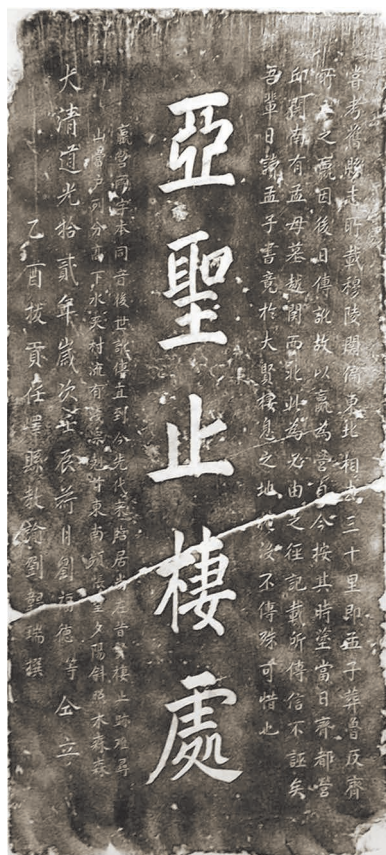 嘗考舊縣志所載穆陵關偏東北相去三十里即孟子葬魯反齊
所止之嬴因後日傳訛故以嬴為營自今按其時塗當日齊都營
邱關南有孟母墓越關西北此為必由之徑記載所傳信不誣矣
吾輩日讀孟子書竟於大賢棲息之地淹沒不傳殊可惜也
亞聖止棲處
嬴營兩字本同音後世訛傳直到今先代
居
在昔
棲止跡難尋
山
分高下水
村流有淺深
東南
夕陽斜照木森森
大清道光拾貳年歲次壬辰荷月劉
德等仝立
乙酉拔貢任嶧縣教諭劉
瑞撰